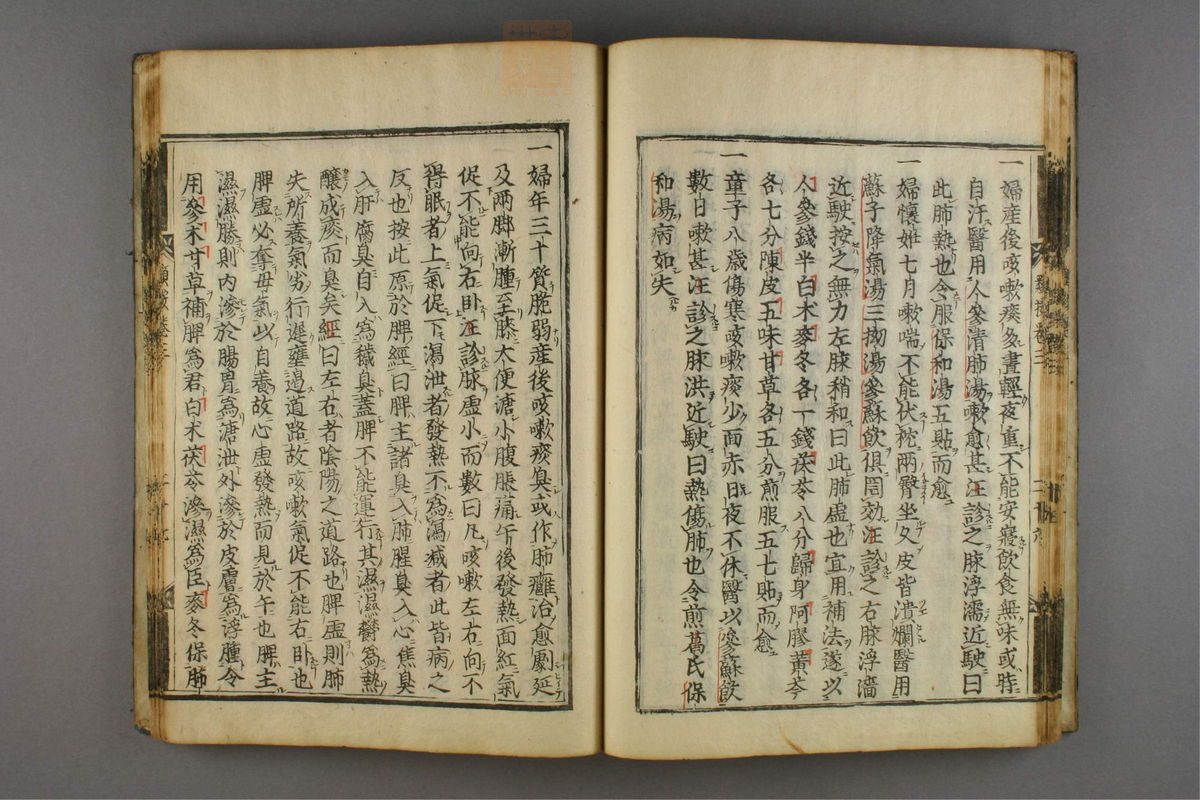 一婦産後咳嗽痰多晝輕夜重不能安寢飲食無味或時
自汗醫用人參清肺湯嗽愈甚汪診之脉浮濡近駛曰
此肺熱也令服保和湯五貼而愈
一婦懷妊七月嗽喘不能伏枕兩臀坐久皮皆潰爛醫用
蘇子降氣湯三拗湯參蘇飲俱罔効汪診之右脉浮濇
近駛按之無力左脉稍和曰此肺虛也宜用補法遂以
人參錢半白朮麥冬各一錢茯苓八分歸身阿膠黃芩
各七分陳皮五味甘草各五分煎服五七貼而愈
一童子八歲傷寒咳嗽痰少面赤日夜不休醫以參蘇飲
數日嗽甚汪診之脉洪近駛曰熱傷肺也令煎葛氏保
和湯病如失
一婦年三十質脆弱産後咳嗽痰臭或作肺癰治愈劇延
及兩脚漸腫至膝大便溏小腹脹痛午後發熱面紅氣
促不能向右卧汪診脉虛小而數曰凡咳嗽左右向不
得眠者上氣促下瀉泄者發熱不為瀉減者此皆病之
反也按此原於脾經曰脾主諸臭入肺腥臭入心焦臭
入肝腐臭自入為穢臭蓋脾不能運行其濕濕鬱為熱
釀成痰而臭矣經曰左右者陰陽之道路也脾虛則肺
失所養氣劣行遲壅遏道路故咳嗽氣促不能右卧也
脾虛必奪母氣以自養故心虛發熱而見於午也脾主
濕濕勝則内滲於腸胃為溏泄外滲於皮膚為浮腫令
用參朮甘草補脾為君白朮茯苓滲濕為臣麥冬保肺